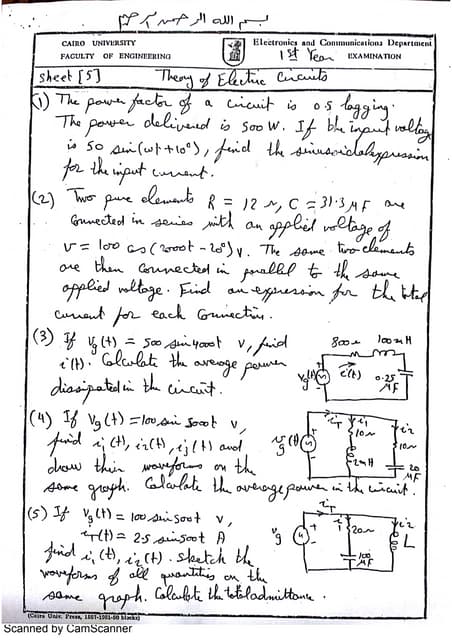 بسم الله الرحمن الرحيم
CAIRO UNIVERSITY
FACULTY OF ENGINEERING
Electronics and Communications Department
1st Year EXAMINATION
sheet [5] Theory of Electric Circuits
(1) The power factor of a circuit is 0.5 lagging.
The power delivered is 500 W. If the input voltage
is 50 sin(ωt+10°), find the sinusoidal expression
for the input current.
(2) Two pure elements R = 12 Ω, C = 31.3 μF are
connected in series with an applied voltage of
v = 100 cos(2000t - 20°) v. The same two elements
are then connected in parallel to the same
applied voltage. Find an expression for the total
current for each connection.
(3) If Vg(t) = 500 sin 400t V, find
i(t). Calculate the average power
dissipated in the circuit.
800Ω 100mH
Vg(t) i(t) 0.25 μF
(4) If Vg(t) = 100 sin 500t V,
find i1(t), i2(t), iT(t) and
draw their waveforms on the
same graph. Calculate the average power in the circuit.
Vg(t) iT i1 i2
10Ω 10Ω
2mH 20 μF
(5) If Vg(t) = 100 sin 500t V,
iT(t) = 2.5 sin 500t A
find i1(t), i2(t). sketch the
waveforms of all quantities on the
same graph. Calculate the total admittance.
Vg iT i1 i2
20Ω L
100 μF
(Cairo Univ. Press, 1887-1981-50 blocks)
Scanned by CamScanner